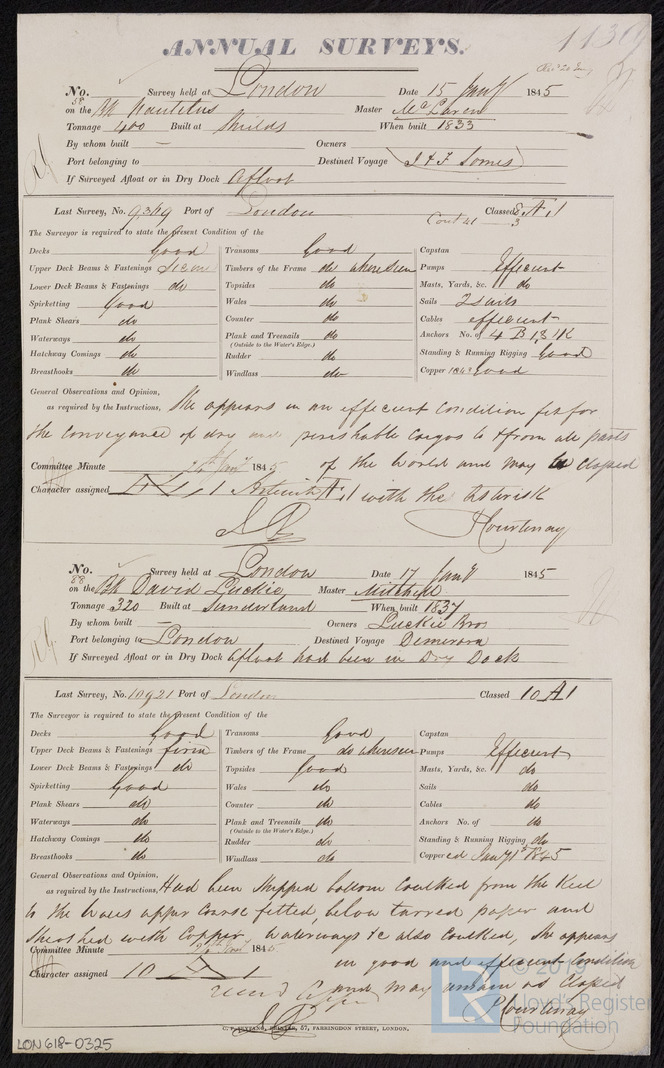 1139
ANNUAL SURVEYS.
No. 58 Survey held at London Date 15 Jany 1845
on the Bk Nautilus Master McLaren
Tonnage 400 Built at Shields When built 1833
By whom built — Owners
Port belonging to Destined Voyage J & F Somes
If Surveyed Afloat or in Dry Dock Afloat
Last Survey, No. 9369 Port of London Classed Æ 1
Cont 41 3
The Surveyor is required to state the present Condition of the
Decks Good Transoms Good Capstan
Upper Deck Beams & Fastenings Seem Timbers of the Frame do where seen Pumps Efficient
Lower Deck Beams & Fastenings do Topsides do Masts, Yards, &c. do
Spirketting Good Wales do Sails 2 suits
Plank Shears do Counter do Cables efficient
Waterways do Plank and Treenails do Anchors No. of 4 B 1 S 1 K
(Outside to the Water's Edge.)
Hatchway Comings do Rudder do Standing & Running Rigging Good
Breasthooks do Windlass do Copper 1843 Good
General Observations and Opinion,
as required by the Instructions, She appears in an efficient condition fit for
the conveyance of dry and perishable cargos to & from all parts
Committee Minute 24th Jany 1845 of the World and may be classed
Character assigned Æ 1 Asterisk Æ 1 with the Asterisk
P Courtenay
No. 88 Survey held at London Date 17 Jany 1845
on the Bk David Luckie Master Mitchell
Tonnage 320 Built at Sunderland When built 1837
By whom built — Owners Luckie Bros
Port belonging to London Destined Voyage Demerara
If Surveyed Afloat or in Dry Dock Afloat had been in Dry Dock
Last Survey, No. 10921 Port of London Classed 10 A 1
The Surveyor is required to state the present Condition of the
Decks Good Transoms Good Capstan
Upper Deck Beams & Fastenings firm Timbers of the Frame do where seen Pumps Efficient
Lower Deck Beams & Fastenings do Topsides Good Masts, Yards, &c. do
Spirketting Good Wales do Sails do
Plank Shears do Counter do Cables do
Waterways do Plank and Treenails do Anchors No. of do
(Outside to the Water's Edge.)
Hatchway Comings do Rudder do Standing & Running Rigging do
Breasthooks do Windlass do Coppered Jany 1845
General Observations and Opinion,
as required by the Instructions, Had been stripped bottom caulked from the Keel
to the Wales upper course fitted, below tarred paper and
sheathed with Copper, Waterways &c also caulked, She appears
Committee Minute 24th Jany 1845 in good and efficient condition
Character assigned 10 A 1 and may remain as classed
P Courtenay
C. F. SEYFANG, PRINTER, 57, FARRINGDON STREET, LONDON.
LON618-0325
© 2019
Lloyd's Register
Foundation